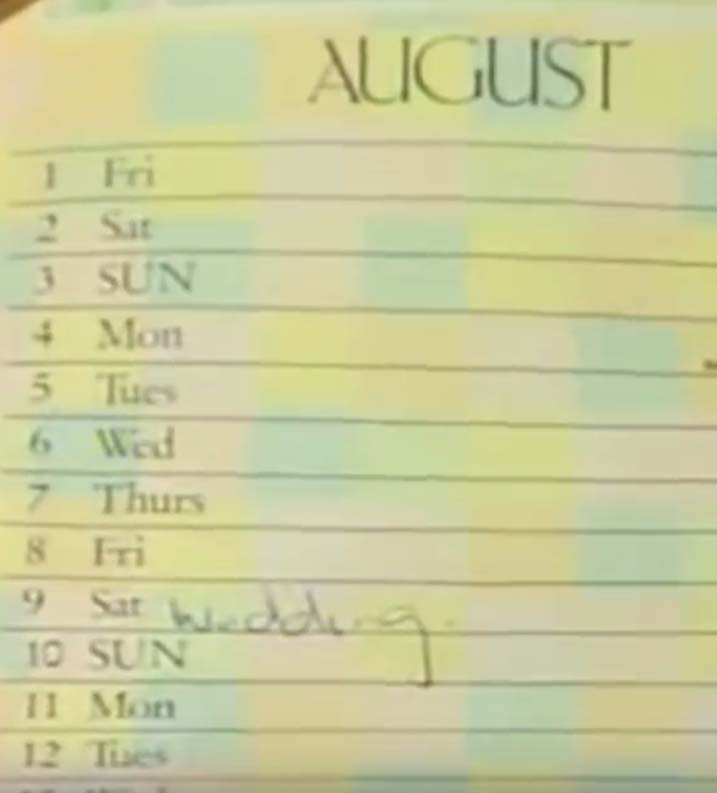 AUGUST
1 Fri
2 Sat
3 SUN
4 Mon
5 Tues
6 Wed
7 Thurs
8 Fri
9 Sat wedding.
10 SUN
11 Mon
12 Tues